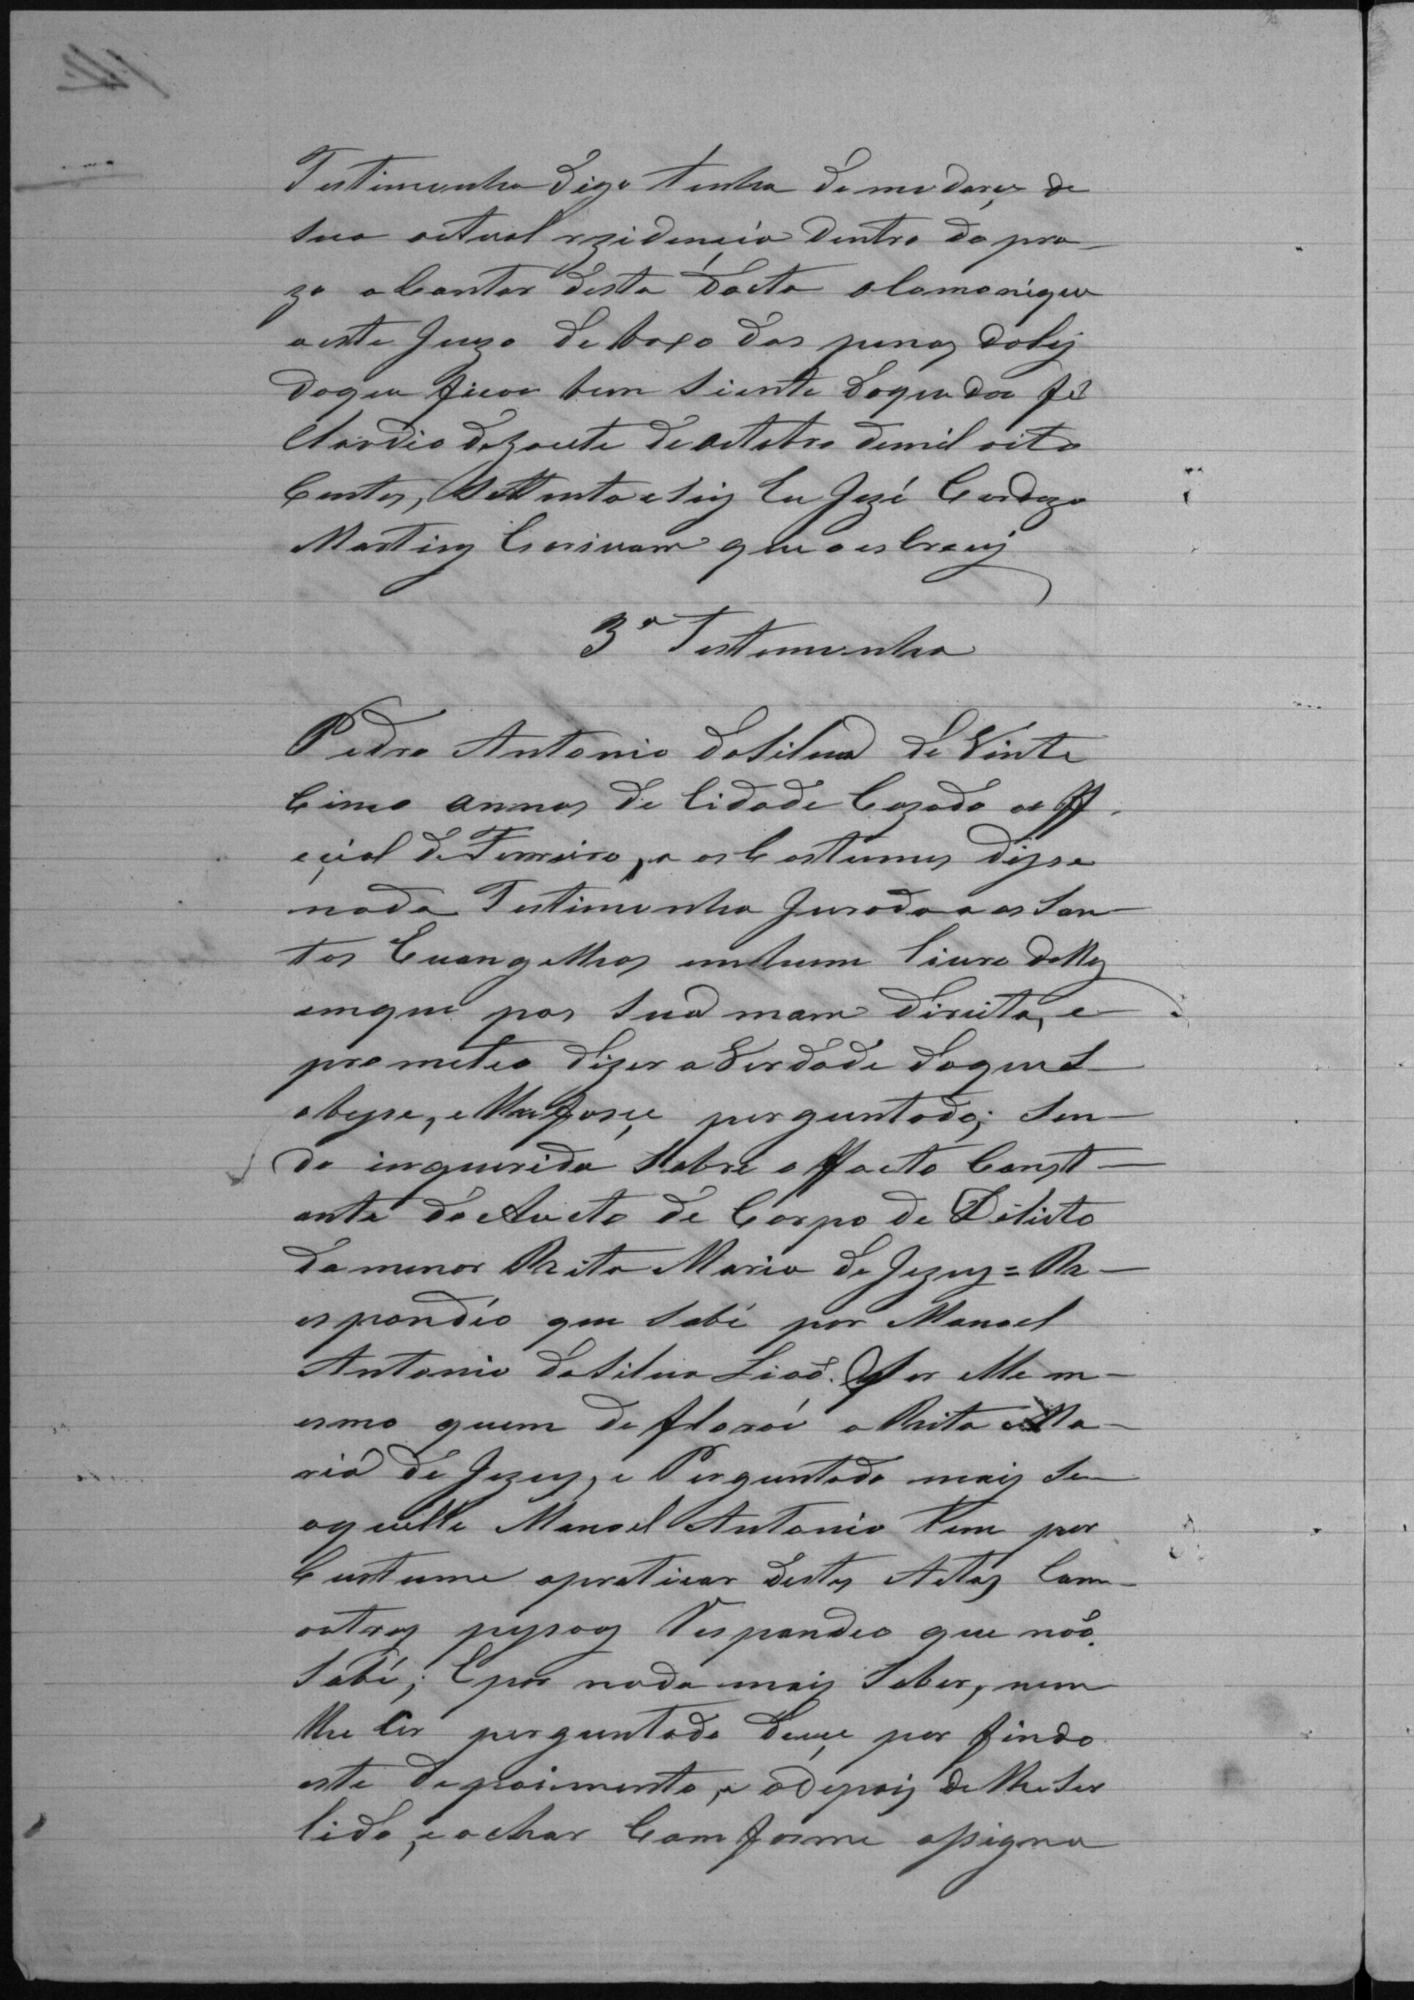 Testimunha digo tenha de mudarçe de
sua actual rezidençia dentro do pra-
zo a Contar desta dacta o Comonique
a este Juizo de baxo das penas da Lej
do que ficou bem siente do que dou fé
dezouto de Outubro de mil oito
Centos, Settenta e Seis Eu Jozé Cardozo
Martins Escrivam que o escrevj
3ª Testemunha
Pedro Antonio da Silva de Vinte
Cinco annos de Cidade Cazado off
eçial de Ferreiro, a os Costumes dipse
nada Testimunha Jurada a os San-
tos Evangelhos em hum Livro delles
em que pos sua mam direita, e
prometeo dizer a Verdade do que S-
obepse, e lhe fosçe perguntado; sen-
do inquerida Sobre o ffacto Const-
ante do Aucto de Corpo de Delicto
da menor Rita Maria de Jezus = Re-
espondéo que sabé por Manoel
Antonio da Silva Liaõ. Ser elle m-
esmo quem defloroú a Rita Ma-
ria de Jezus, e Perguntado mais se
aquelle Manoel Antonio tem por
Custume apraticar destes Actos Com-
outras pepsoas Respondeo que naõ
Sabé; E por nada mais Saber, nem
lhe Ser perguntado deuçe por findo
este depoimento, e adepois de lhe ser
lido, e achar Comforme apsigna